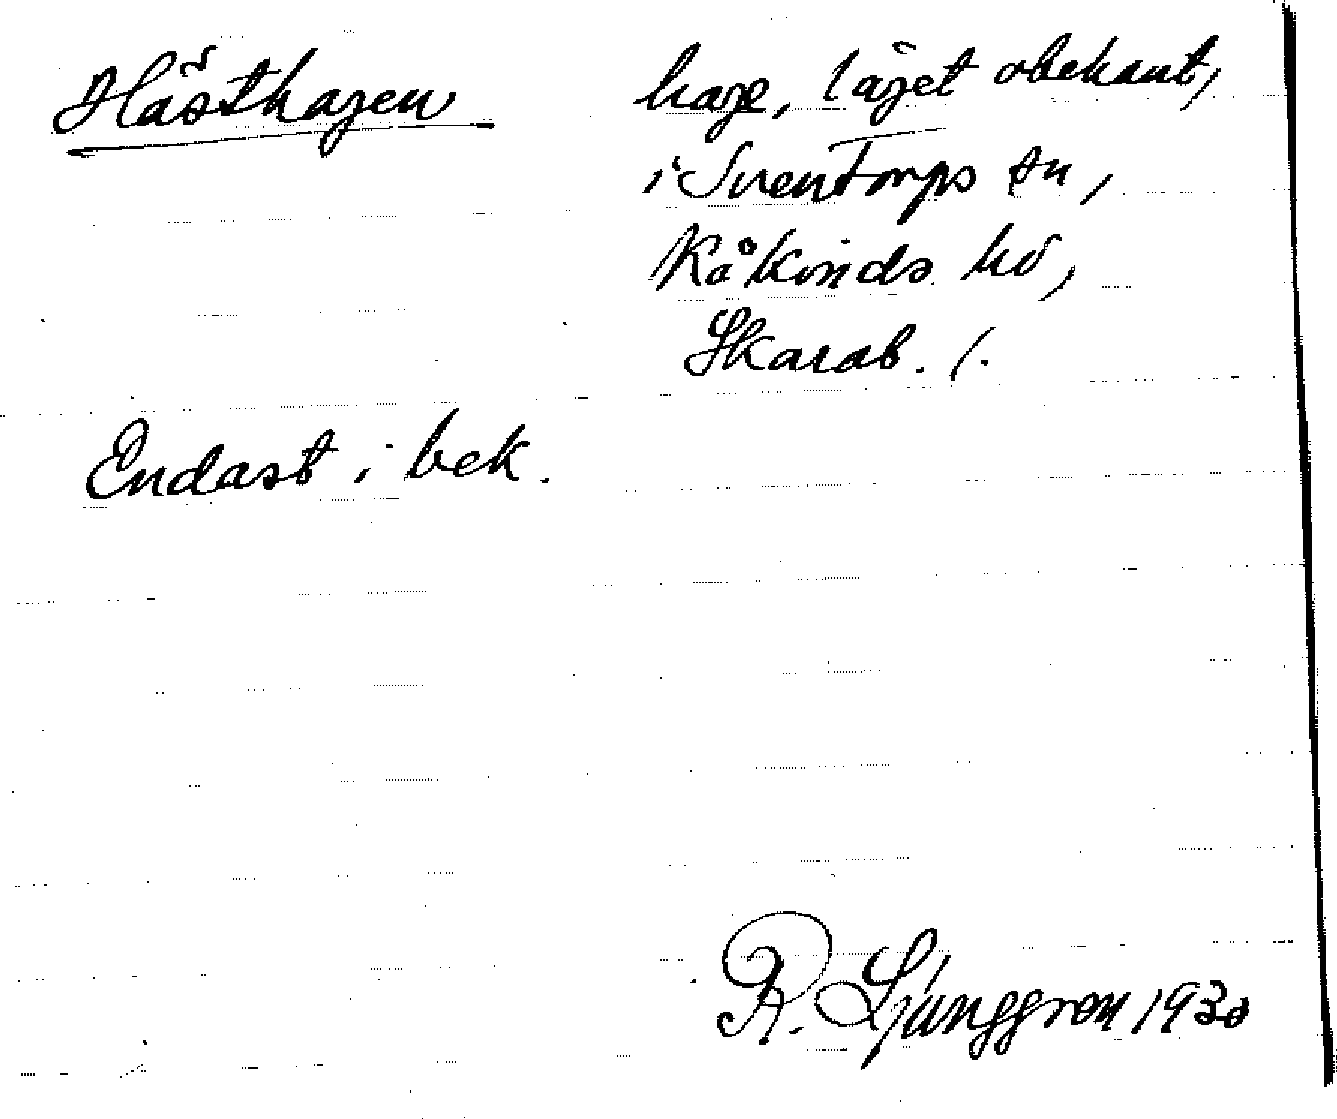 Hästhagen
hage, läget obekant,
i Sventorps sn,
Kåkinds hd,
Skarab. l.
Endast i bek.
R. Ljunggren 1930